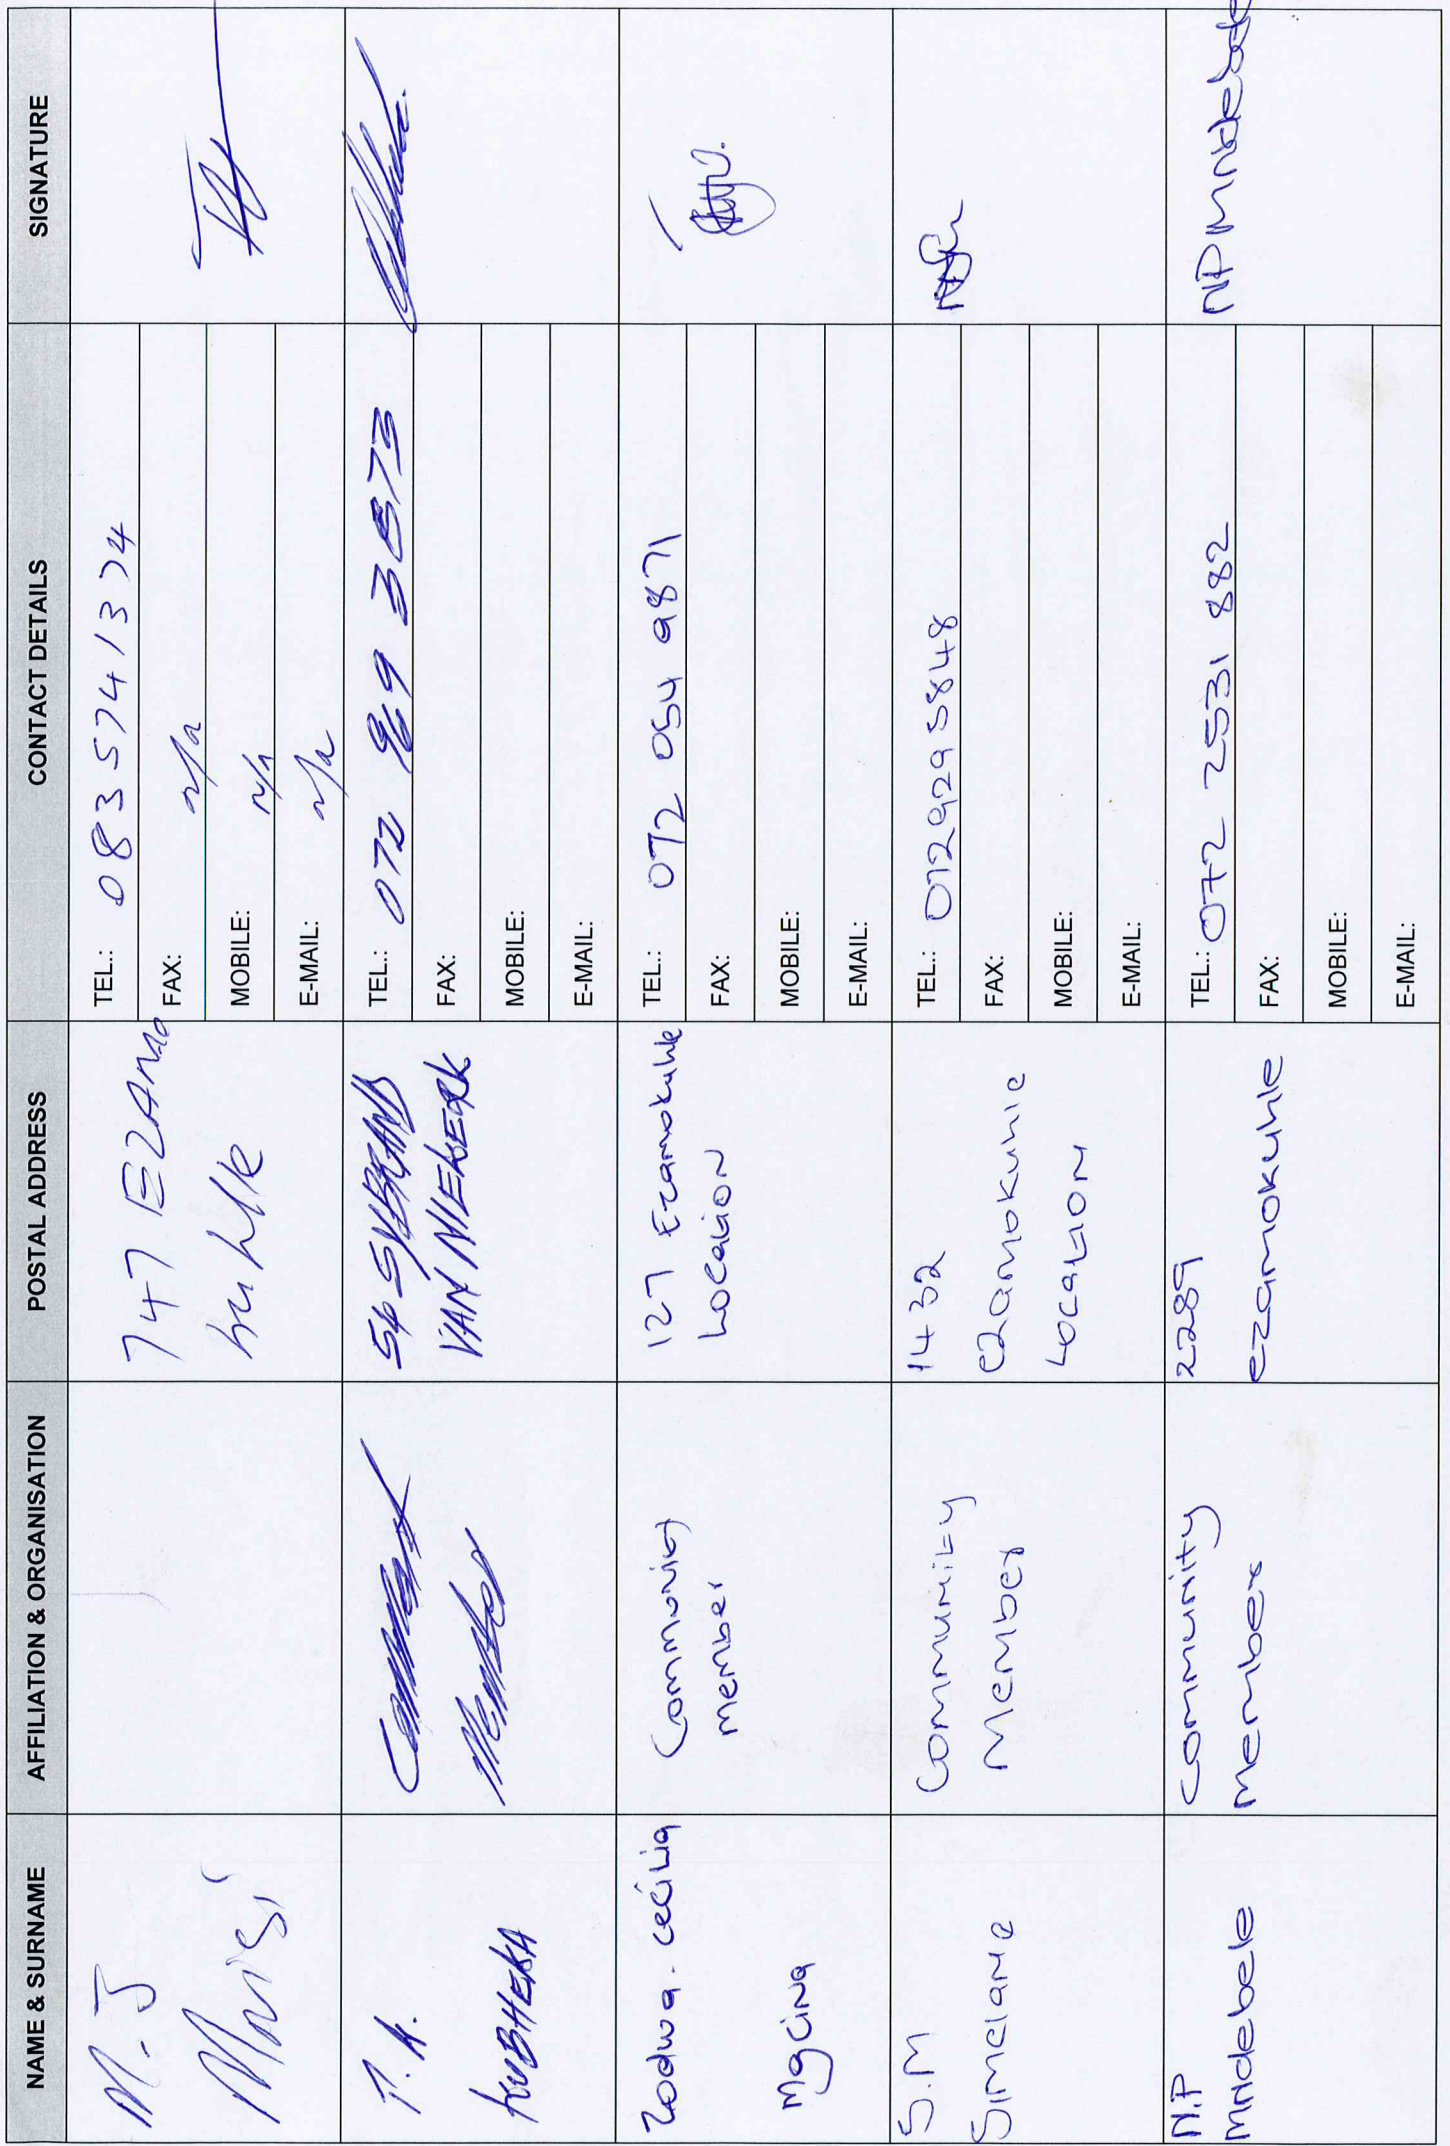 NAME & SURNAME AFFILIATION & ORGANISATION POSTAL ADDRESS CONTACT DETAILS SIGNATURE
M.J
747 EZAmo
kuhle
TEL.: 083 574 1374
FAX: n/a
MOBILE: n/a
E-MAIL: n/a
T. K.
KUBHEKA
Community
Member
56 SYBRAND
VAN NIEKERK
TEL.: 072 969 3873
FAX:
MOBILE:
E-MAIL:
Zodwa. Cecilia
Mgcina
Community
member
127 Ezamokuhle
Location
TEL.: 072 054 9871
FAX:
MOBILE:
E-MAIL:
S.M
Simelane
Community
Member
1432
Ezamokuhle
Location
TEL.: 0729295848
FAX:
MOBILE:
E-MAIL:
N.P
Mndebele
community
member
2289
ezamokuhle
TEL.: 072 2531 882
FAX:
MOBILE:
E-MAIL:
NP Mndebele